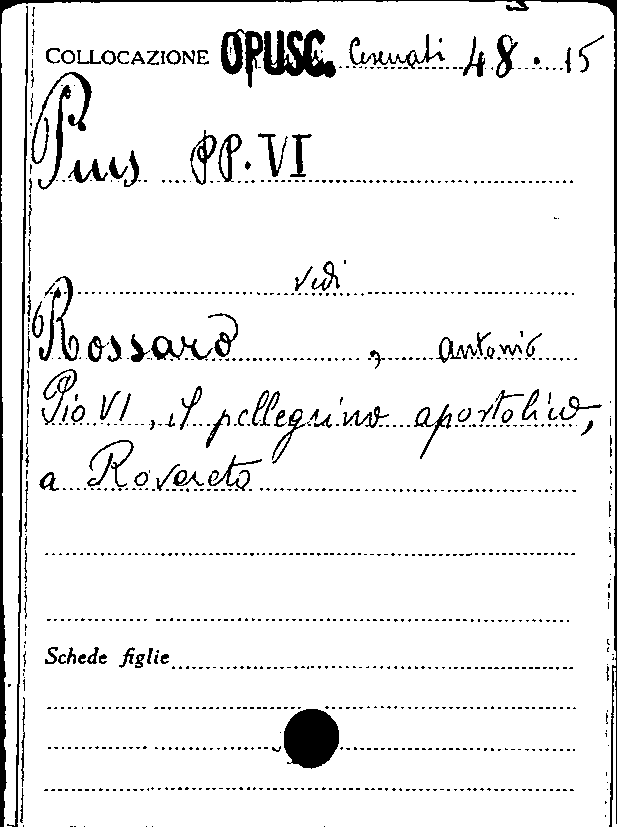 COLLOCAZIONE OPUSC. Cesenati 48.15
Pius PP.VI
vedi
Rossaro, Antonio
Pio VI, il pellegrino apostolico,
a Rovereto
Schede figlie